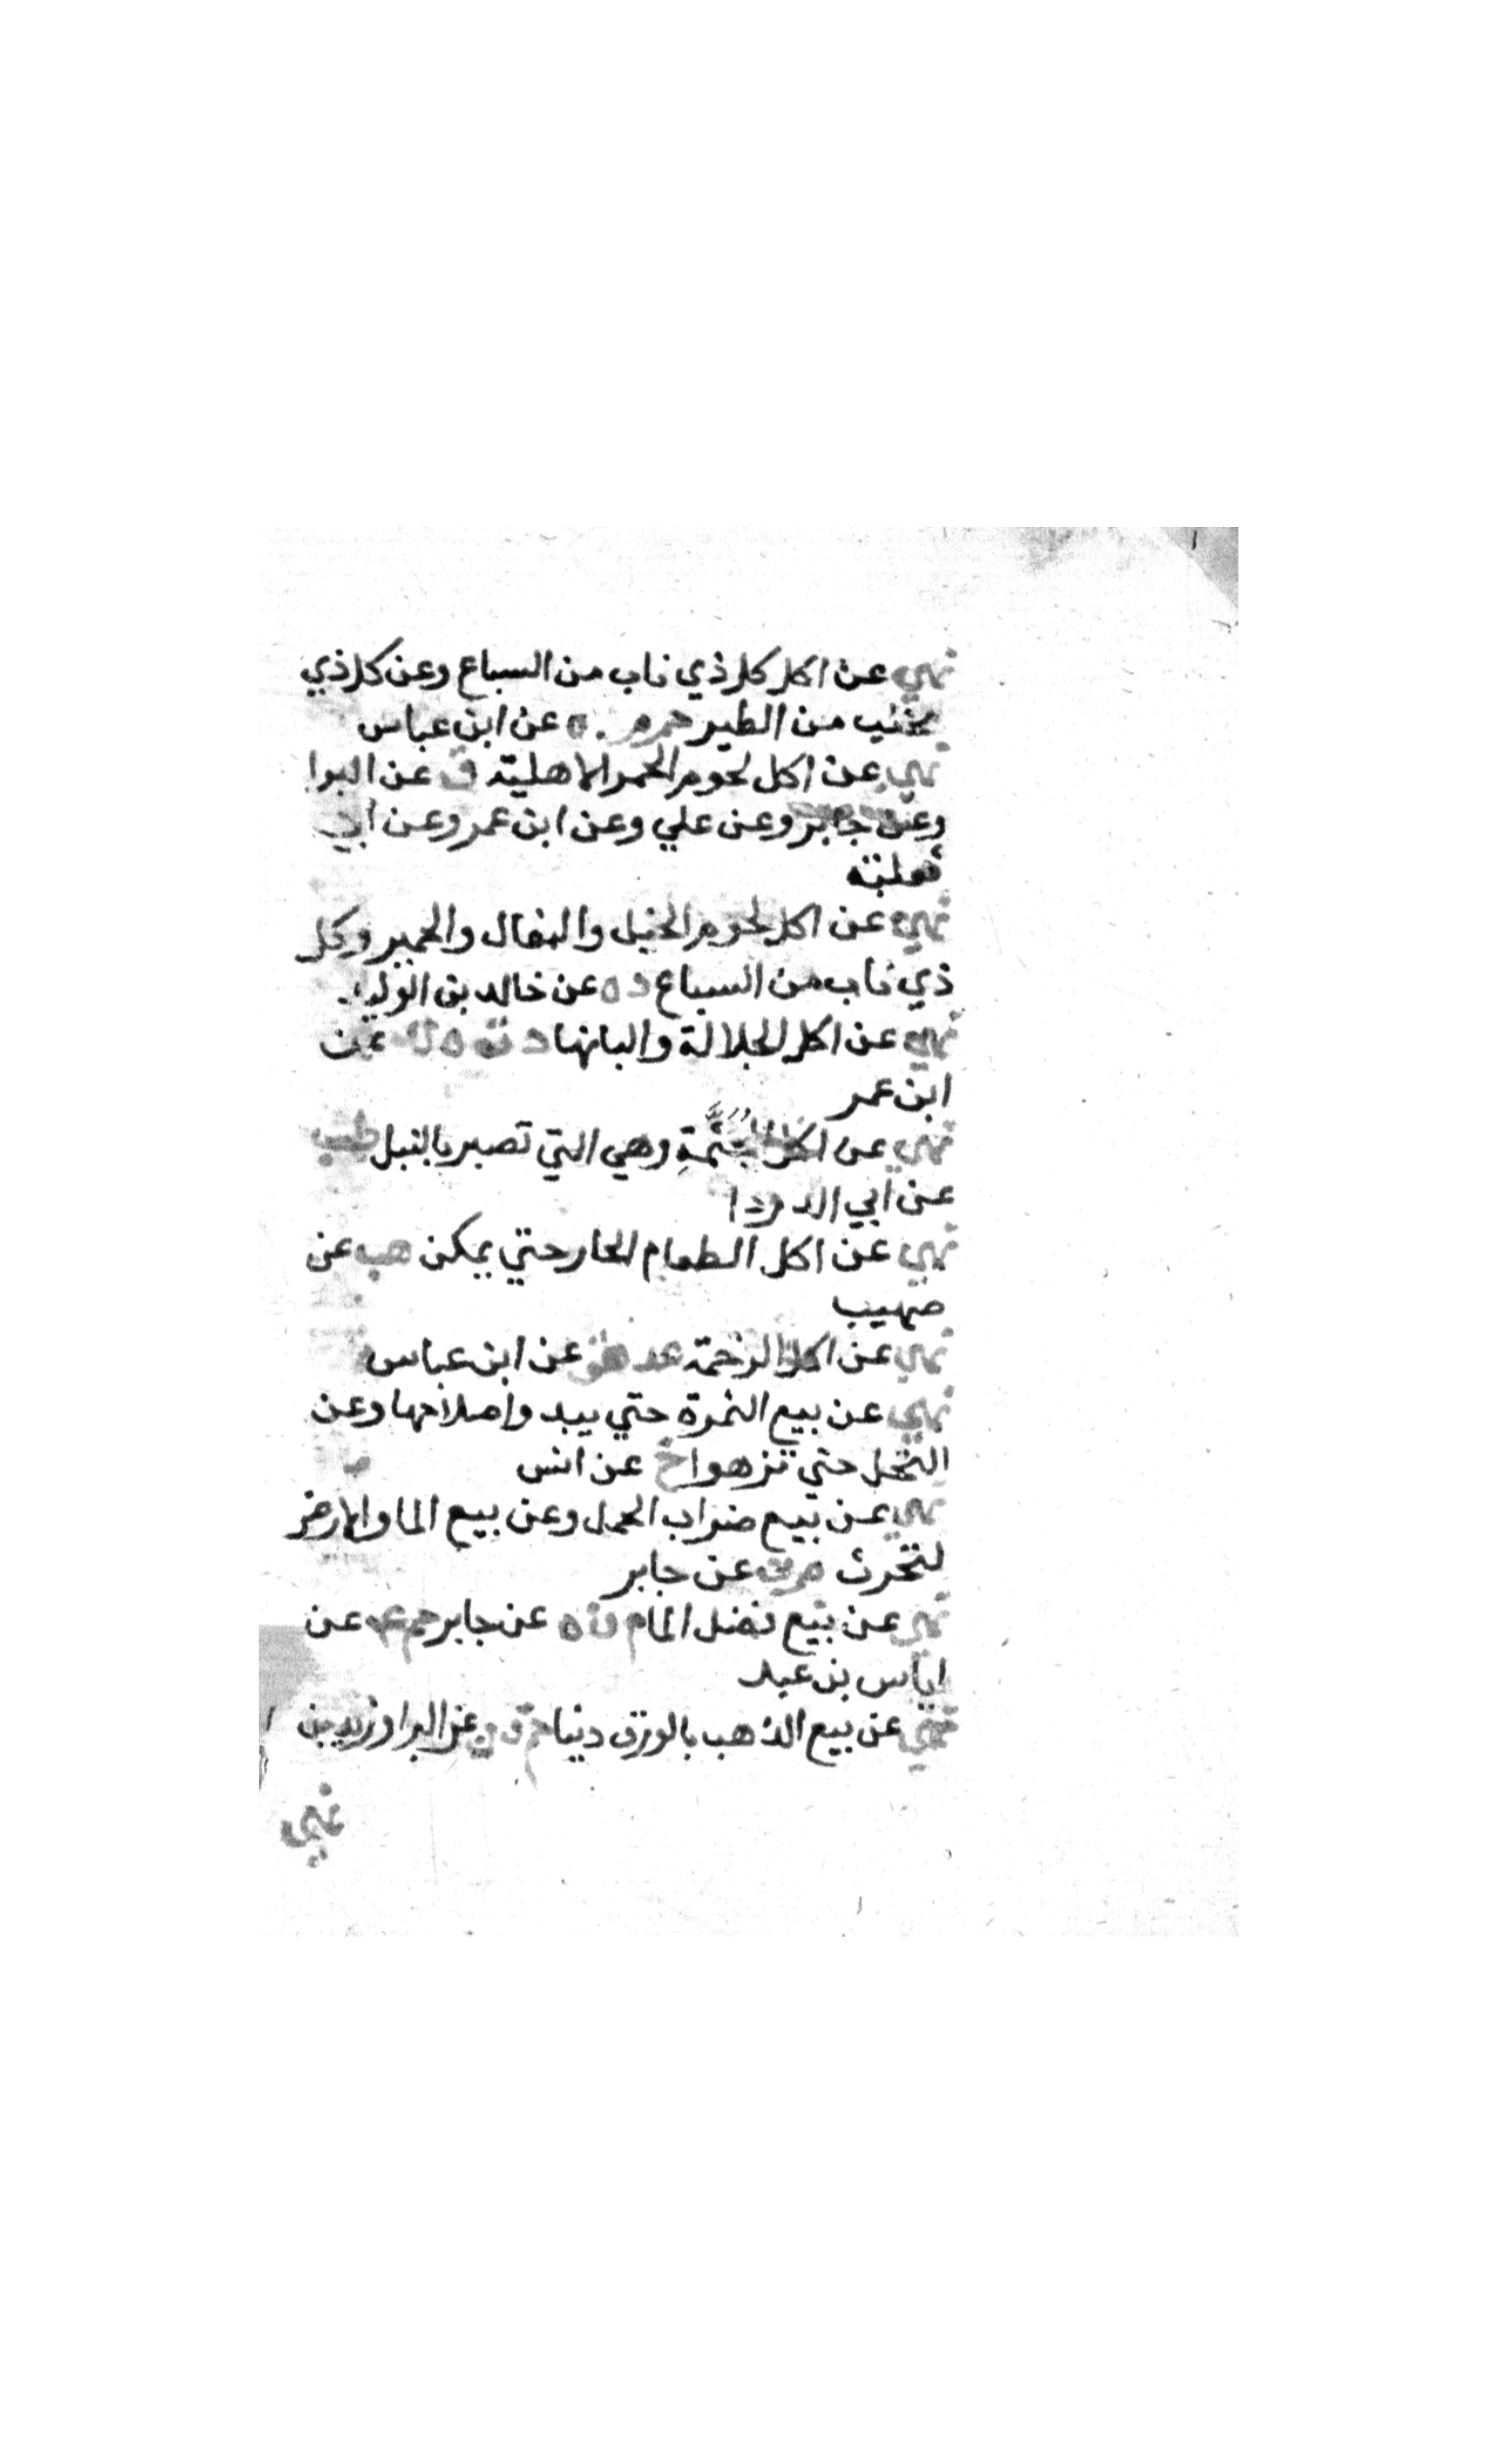 نهي عن اكل كل ذي ناب من السباع وعن كل ذي
مخلب من الطير حم م د ه عن ابن عباس
نهي عن اكل لحوم الحمر الاهلية ق عن البرا
وعن جابر وعن علي وعن ابن عمر وعن ابي
ثعلبة
نهي عن اكل لحوم الخيل والبغال والحمير وكل
ذي ناب من السباع د ه عن خالد بن الوليد
نهي عن اكل الجلالة والبانها د ت ه ك عن
ابن عمر
نهي عن اكل المجثمة وهي التي تصبر بالنبل
عن ابي الدردا
نهي عن اكل الطعام الحار حتي يمكن هب عن
صهيب
نهي عن اكل الرخمة عد هق عن ابن عباس
نهي عن بيع الثمرة حتي يبدوا صلاحها وعن
النخل حتي تزهوا خ عن انس
نهي عن بيع ضراب الجمل وعن بيع الما والارض
لتحرث م ن عن جابر
نهي عن بيع فضل الما م ن ه عن جابر حم عن
اياس بن عبد
نهي عن بيع الذهب بالورق دينا حم ق ن عن البرا وزيد بن
نهي